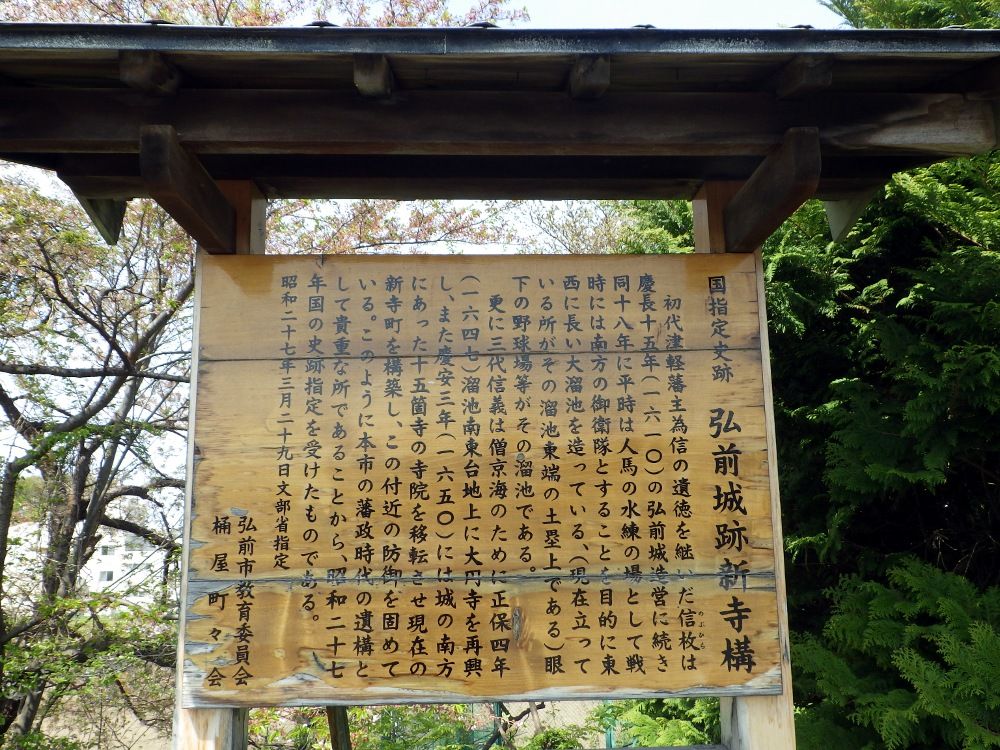 国指定史跡　弘前城跡新寺構
初代津軽藩主為信の遺徳を継いだ信枚は
のぶひら
慶長十五年(一六一〇)の弘前城造営に続き
同十八年に平時は人馬の水練の場として戦
時には南方の御衛隊とすることを目的に東
西に長い大溜池を造っている、(現在立って
いる所がその溜池東端の土塁上である)眼
下の野球場等がその溜池である。
更に三代信義は僧京海のために正保四年
(一六四七)溜池南東台地上に大円寺を再興
し、また慶安三年(一六五〇)には城の南方
にあった十五箇寺の寺院を移転させ現在の
新寺町を構築し、この付近の防御を固めて
いる。このように本市の藩政時代の遺構と
して貴重な所であることから、昭和二十七
年国の史跡指定を受けたものである。
昭和二十七年三月二十九日文部省指定
弘前市教育委員会
桶屋町々会